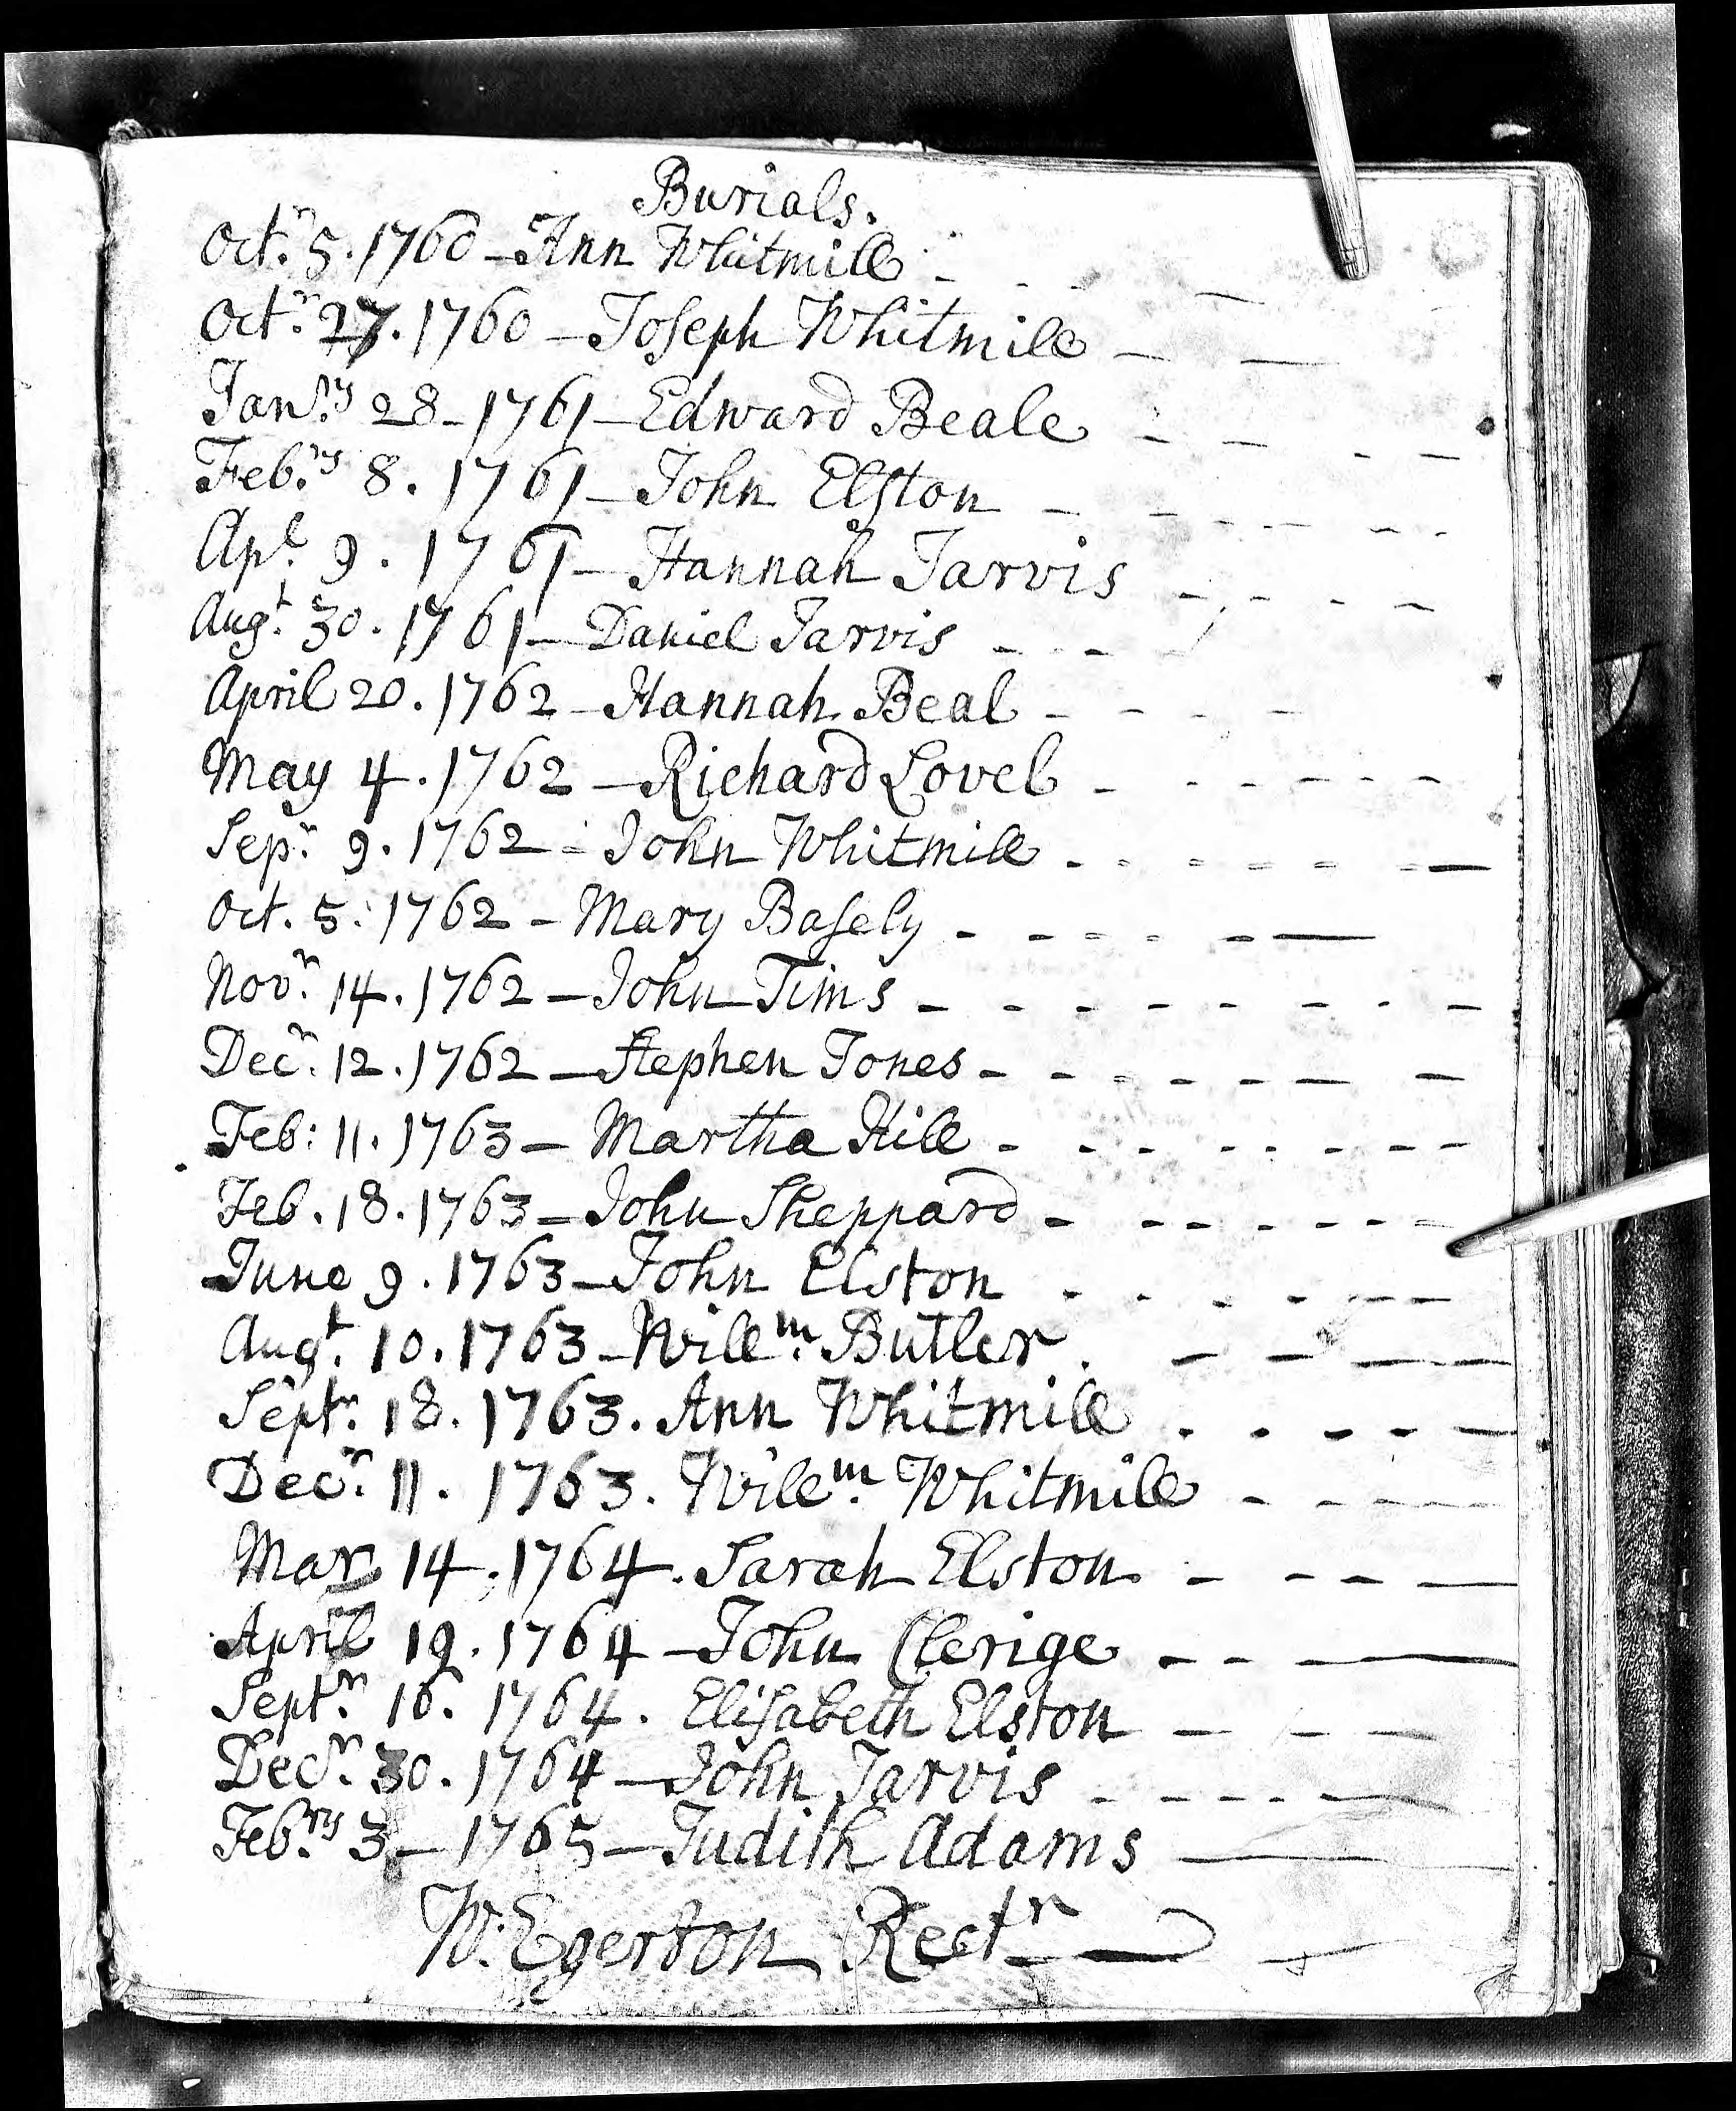 Burials.
Octr. 5. 1760 - Ann Whitmill
Octr. 27. 1760 - Joseph Whitmill
Janry. 28 - 1761 - Edward Beale
Febry. 8. 1761 - John Elston
Apl. 9. 1761 - Hannah Jarvis
Augt. 30. 1761 - Daniel Jarvis
April 20. 1762 - Hannah Beal
May 4. 1762 - Richard Lovel
Sepr. 9. 1762 - John Whitmill
Oct. 5. 1762 - Mary Basely
Novr. 14. 1762 - John Tims
Decr. 12. 1762 - Stephen Jones
Feb: 11. 1763 - Martha Hill
Feb. 18. 1763 - John Sheppard
June 9. 1763 - John Elston
Augt. 10. 1763 - Willm. Butler
Septr. 18. 1763. Ann Whitmill
Decr. 11. 1763. Willm. Whitmill
Mar 14. 1764. Sarah Elston
April 19. 1764 - John Clerige
Septr. 16. 1764. Elisabeth Elston
Decr. 30. 1764 - John Jarvis
Febry. 3 - 1765 - Judith Adams
W. Egerton Rectr